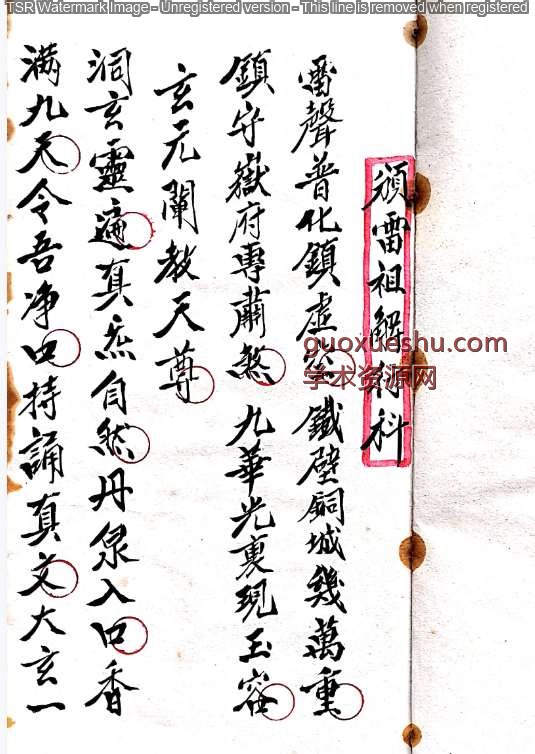 TSR Watermark Image - Unregistered version - This line is removed when registered
雷祖解科
雷聲普化鎮虛鐵壁銅城幾萬重
鎮守嶽府專肅煞九華光裏現玉容
玄元闡教天尊
洞玄靈遍真炁自然丹泉入口香
滿九天令吾净口持誦真文大玄一
guoxueshu.com
学术资源网